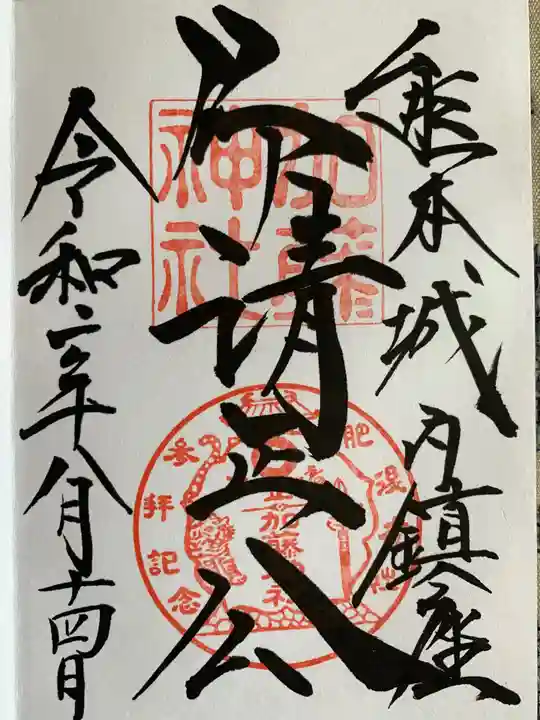 熊本城内鎮座
清正公
令和二年八月十四日
加藤
神社
參拝記念
加藤神社